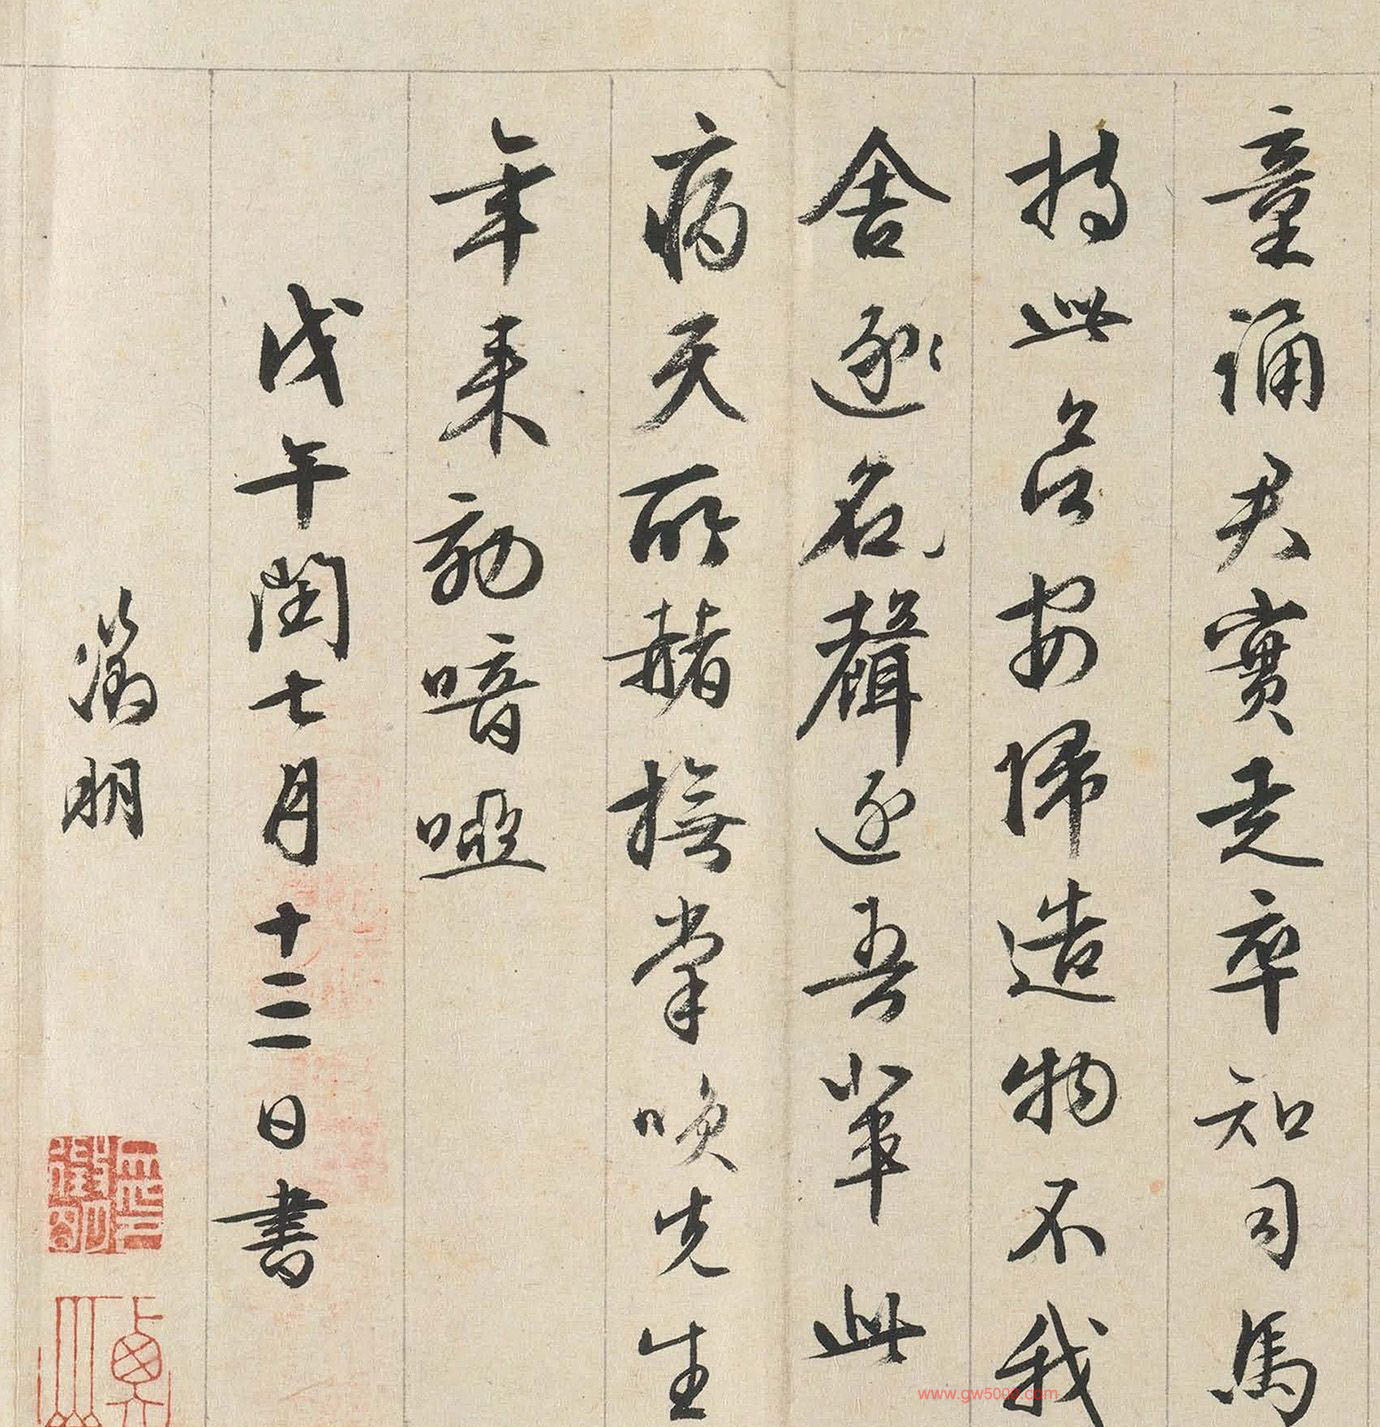 童誦君實走卒知司馬
持此欲安歸造物不我
舍逐名聲逐吾輩此
病天所赭撫掌笑先生
年來効喑啞
戊午閏七月十二日書
徵明
www.gw5000.com